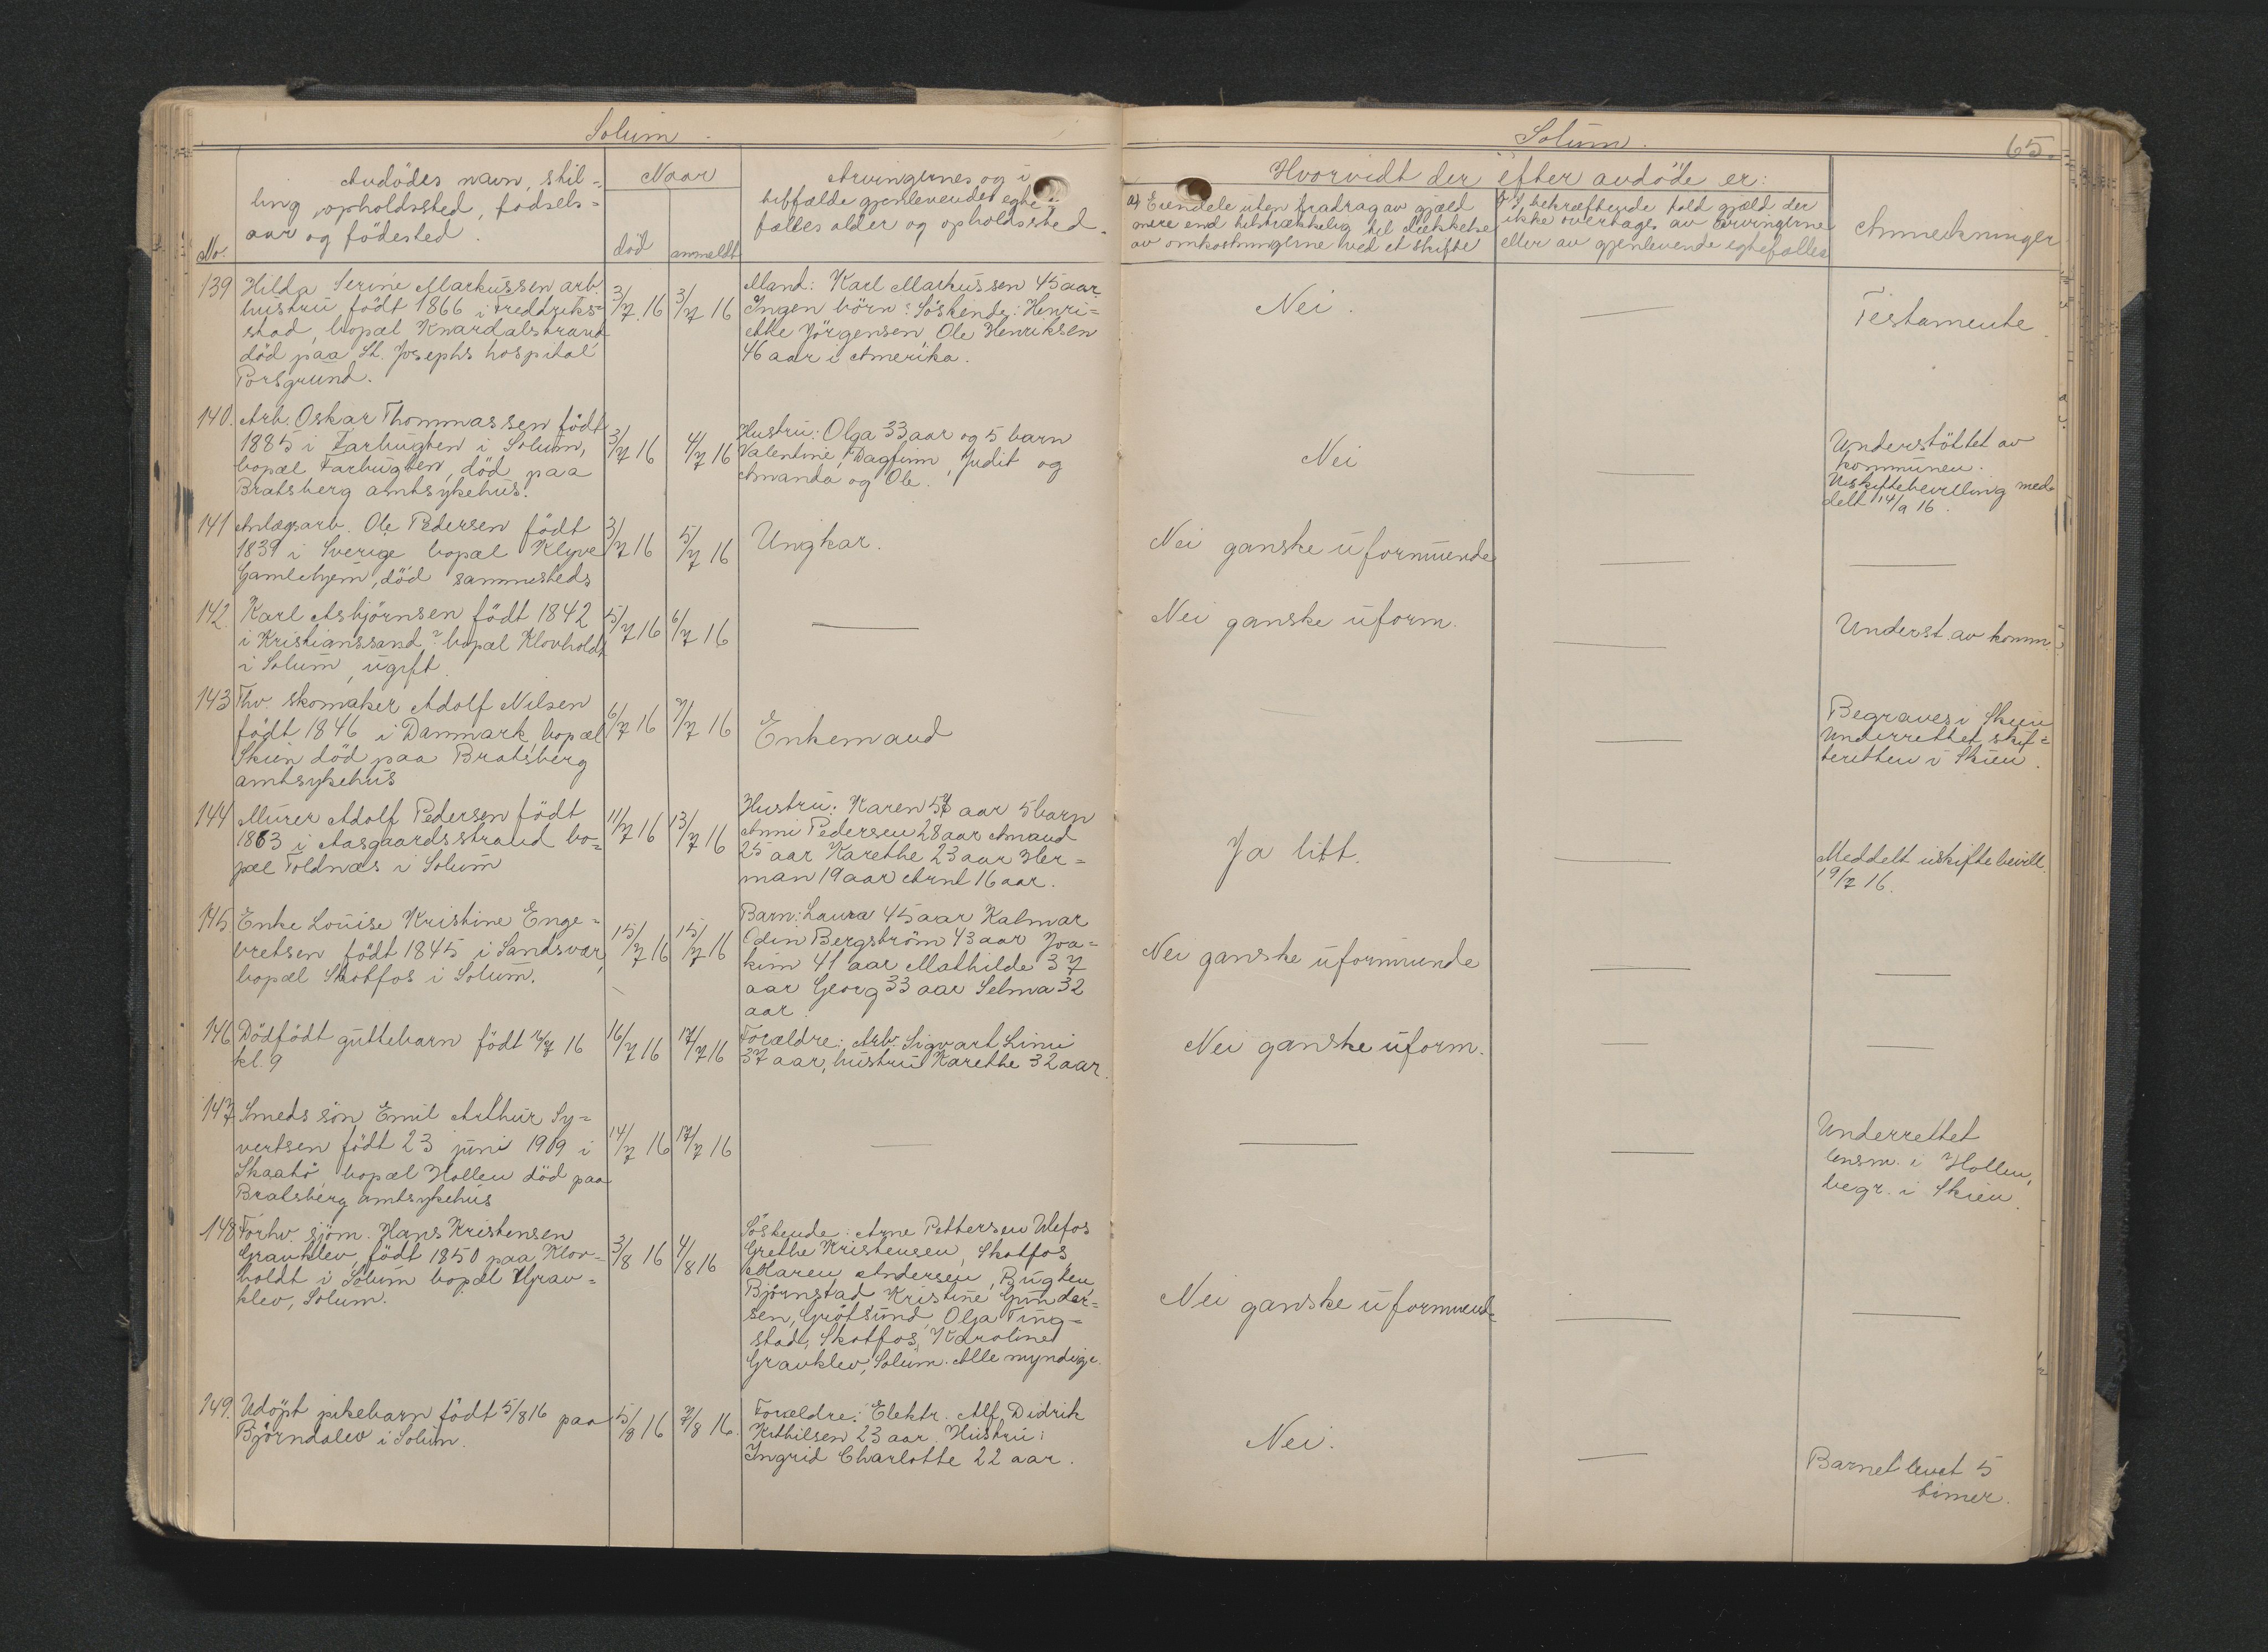 Solum
Avdödes navn, stil-
ling, opholdssted, fødsels-
aar og födested.
No.
Naar
död
anmeldt
Arvingernes og i
tilfælde gjenlevendes egte-
fælles alder og opholdssted.
139 Hilda Serine Markussen arb.
hustru födt 1866 i Freddriks-
stad, bopæl Knardalstrand
död paa St. Josephs hospital
Porsgrund.
3/7 16
3/7 16
Mand: Karl Markussen 45 aar.
Ingen börn: Söskende: Henri-
ette Jörgensen, Ole Henriksen
46 aar i Amerika.
140. Arb. Oskar Thommassen födt
1885 i Farbugten i Solum,
bopæl Farbugten, död paa
Bratsberg amtsykehus.
3/7 16
4/7 16
Hustru: Olga 33 aar og 5 barn
Valentine, Dagfinn, Judit og
Amanda og Ole.
141 Anlægsarb. Ole Pedersen födt
1839 i Sverige bopæl Klyve
Gamlehjem, död sammesteds
3/7 16
5/7 16
Ungkar.
142. Karl Asbjörnsen födt 1842
i Kristianssand? bopæl Klovholdt
i Solum, ugift
5/7 16
6/7 16
143 Fhv. skomaker Adolf Nilsen
födt 1846 i Danmark bopæl
Skien död paa Bratsberg
amtsykehus
6/7 16
7/7 16
Enkemand
144 Murer Adolf Pedersen födt
1863 i Aasgaardsstrand bo-
pæl Toldnæs i Solum
11/7 16
13/7 16
Hustru: Karen 57 aar 5 barn
Anni Pedersen 28 aar Amand
25 aar Karethe 23 aar Her-
man 19 aar Arnt 16 aar.
145 Enke Louise Kristine Enge-
bretsen födt 1845 i Sandsvær,
bopæl Skotfos i Solum.
15/7 16
15/7 16
Barn: Laura 45 aar Kalmar
Odin Bergström 43 aar Joa-
kim 41 aar Mathilde 37
aar Georg 33 aar Selma 32
aar
146 Dödfödt guttebarn födt 16/7 16
kl. 9
16/7 16
17/7 16
Forældre: Arb. Sigvart Linni
37 aar, hustru Karethe 32 aar.
147 Smeds sön Emil Arthur Sy-
vertsen födt 23 juni 1909 i
Skaatö, bopæl Hollen död paa
Bratsberg amtsykehus
14/7 16
17/7 16
148 Forhv. sjöm. Hans Kristensen
Gravklev, födt 1850 paa Klov-
holdt i Solum bopæl Grav-
klev, Solum.
3/8 16
4/8 16
Söskende: Arne Pettersen Ulefos
Grethe Kristensen, Skotfos,
Maren Andersen, Bugten,
Björnstad Kristine Gunder-
sen, Grötsund, Olga Ting-
stad, Skotfos, Karoline
Gravklev, Solum. Alle myndige.
149. Udöpt pikebarn födt 5/8 16 paa
Björndalen i Solum.
5/8 16
7/8 16.
Forældre: Elektr. Alf Didrik
Kittilsen 23 aar. Hustru:
Ingrid Charlotte 22 aar.
Solum.
65.
Hvorvidt der efter avdöde er:
a) Eiendele uten fradrag av gjæld
mere end tilstrækkelig til dækkelse
av omkostningerne ved et skifte
bekræftende fald gjæld der
ikke overtages av arvingerne
eller av gjenlevende egtefælles
Anmerkninger
Nei.
Testamente.
Nei
Understöttet av
kommunen.
Uskiftebevilling med-
delt 14/9 16.
Nei ganske uformuende
Nei ganske uform.
Underst. av komm.
Begraves i Skien
Underrettet skif-
teretten i Skien.
Ja litt.
Meddelt uskiftebevill.
19/7 16.
Nei ganske uformuende
Nei ganske uform.
Underrettet
lensm. i Hollen,
begr. i Skien.
Nei ganske uformuend-
Nei.
Barnet levet 5
timer.